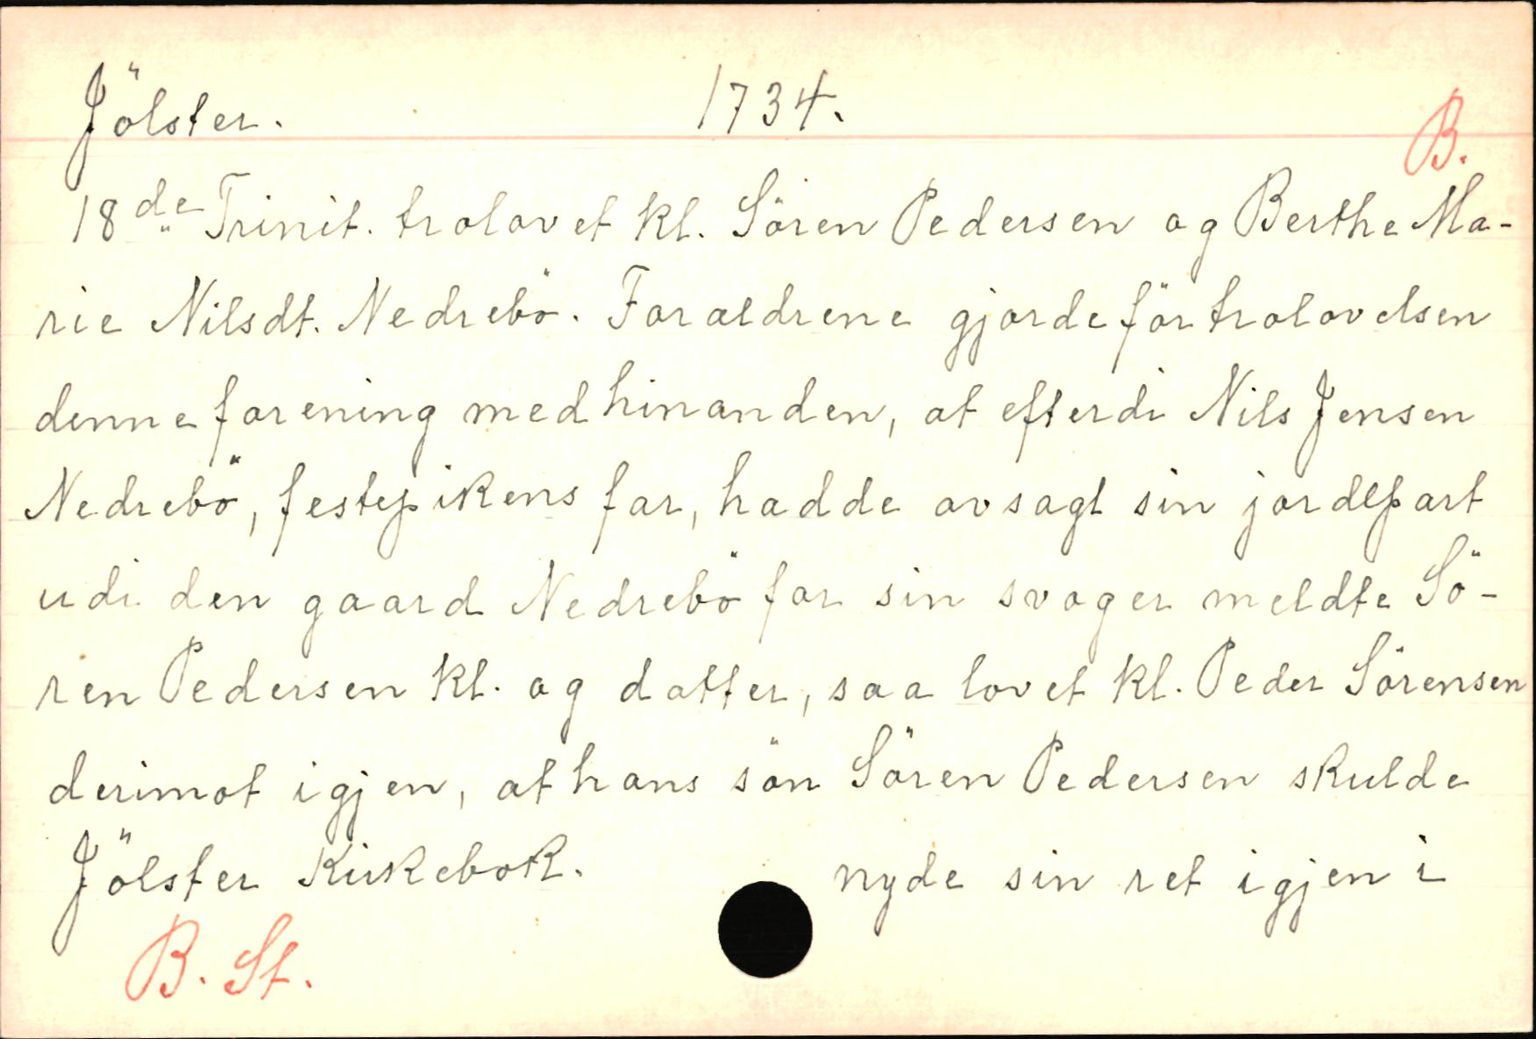 Jölster. 1734.
B.
18de Trinit. trolovet kl. Sören Pedersen og Berthe Ma-
rie Nilsdt. Nedrebö. Foraldrene gjorde för trolovelsen
denne forening med hinanden, at efterdi Nils Jensen
Nedrebö, festepikens far, hadde avsagt sin jordepart
udi den gaard Nedrebö for sin svoger meldte Sö-
ren Pedersen kl. og datter, saa lovet kl. Peder Sörensen
derimot igjen, at hans sön Sören Pedersen skulde
Jölster Kirkebok. nyde sin ret igjen i
B. St.